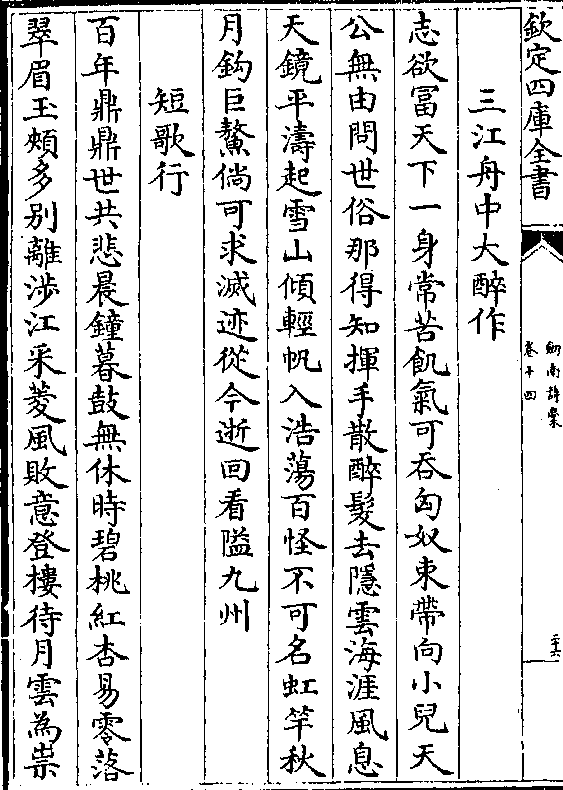 欽定四庫全書
劍南詩稾
卷十四
二十六
三江舟中大醉作
志欲富天下一身常苦飢氣可吞匈奴束帶向小兒天
公無由問世俗那得知揮手散醉髮去隱雲海涯風息
天鏡平濤起雪山傾輕帆入浩蕩百怪不可名虹竿秋
月鈎巨鰲倘可求滅迹從今逝回看隘九州
短歌行
百年鼎鼎世共悲晨鐘暮鼓無休時碧桃紅杏易零落
翠眉玉頰多別離涉江采菱風敗意登樓待月雲為祟